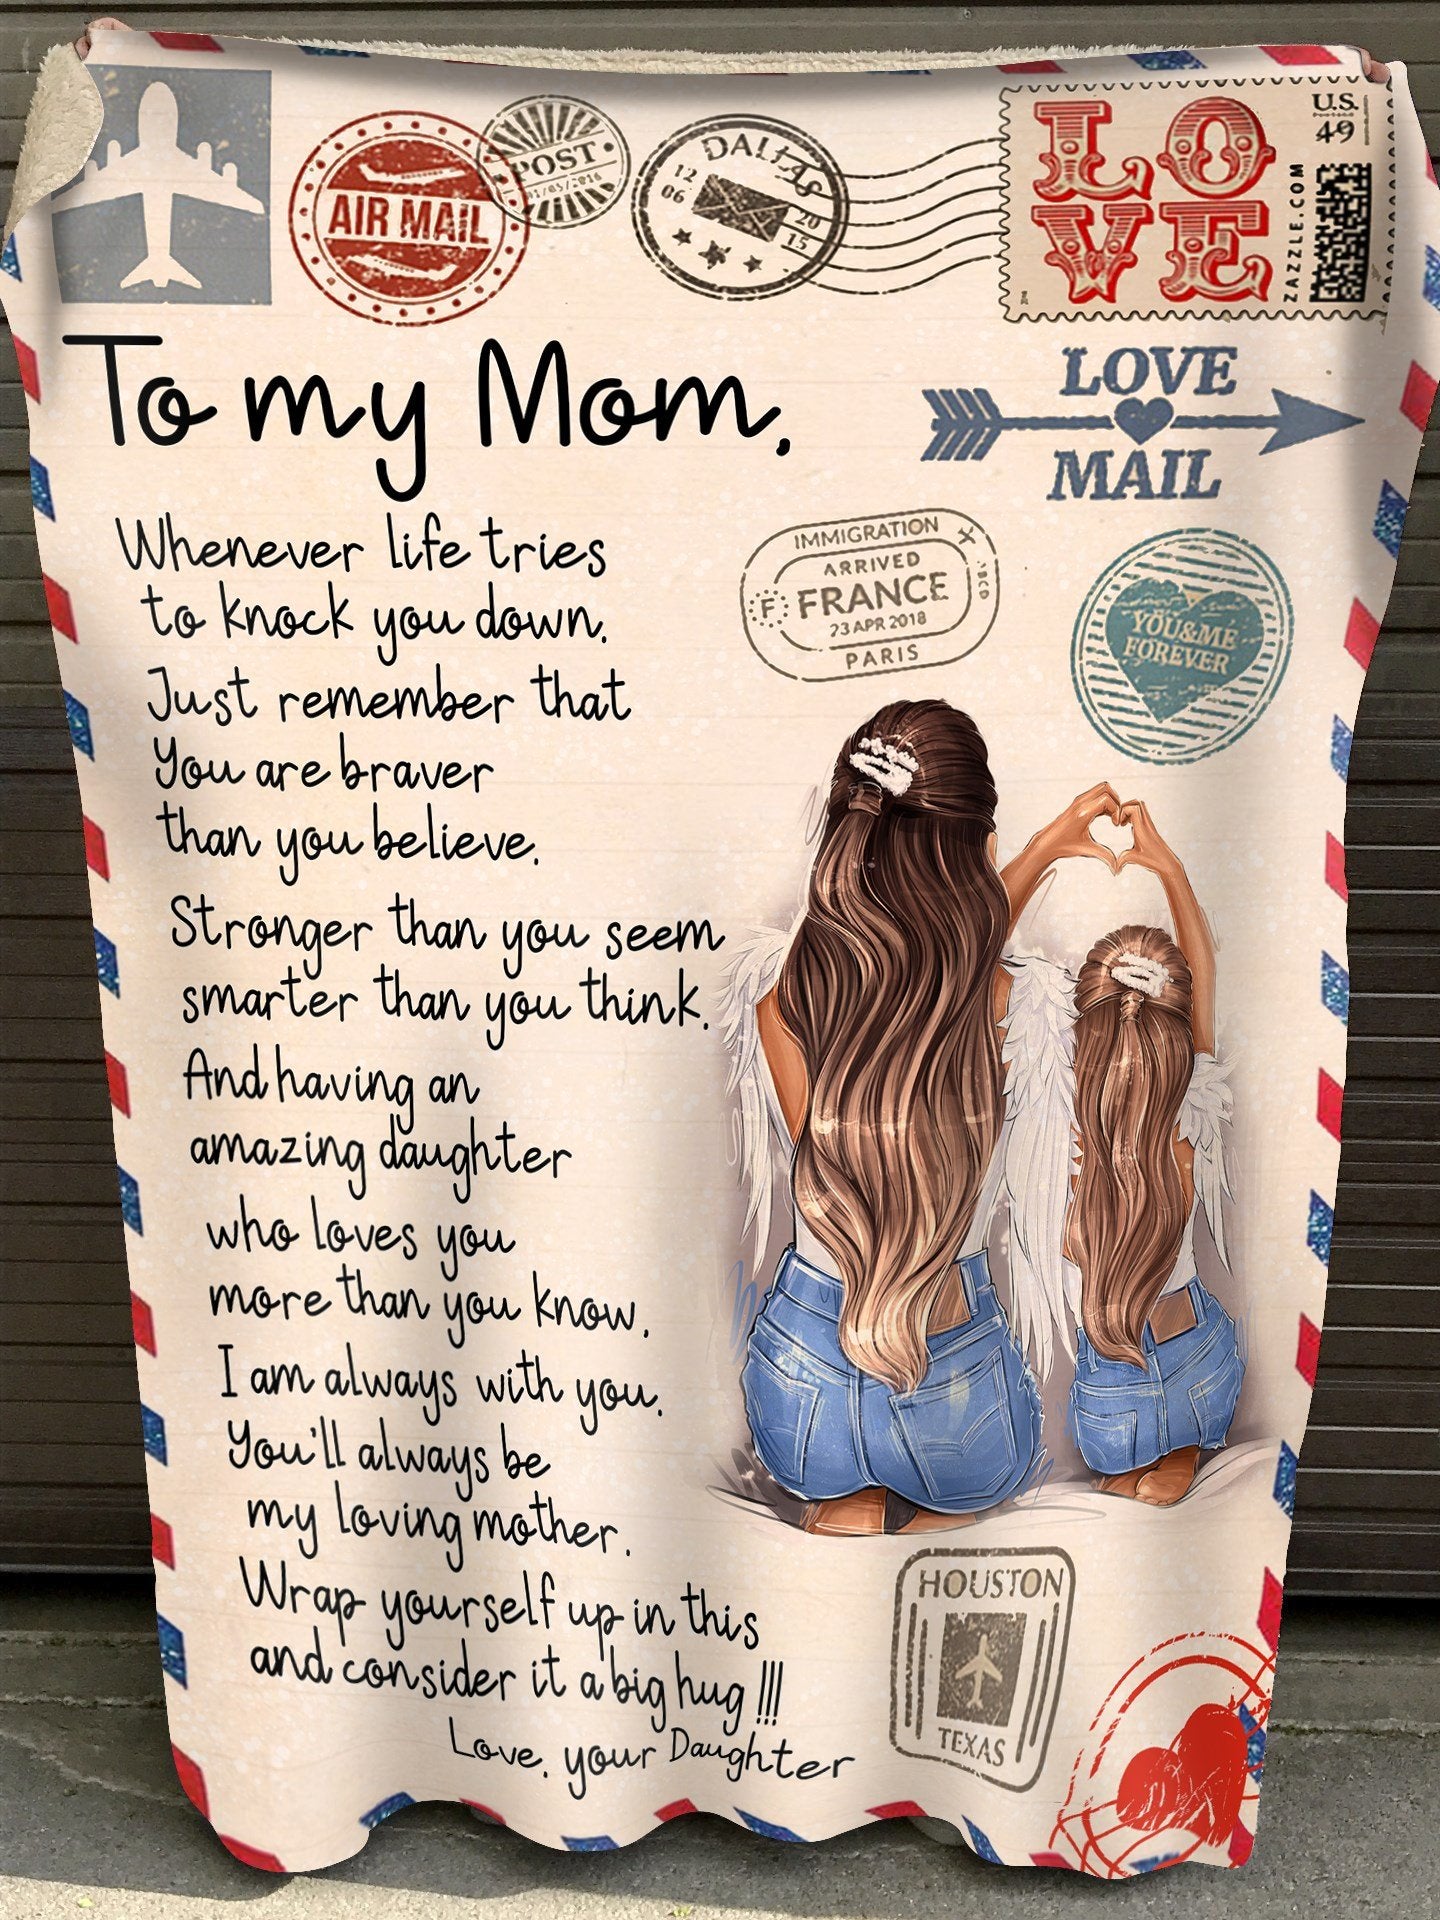 AIR MAIL
POST
01/05/2016
DALLAS
12
06
20
15
LOVE
U.S.
49
ZAZZLE.COM
To my Mom,
LOVE
MAIL
Whenever life tries
to knock you down.
Just remember that
You are braver
than you believe.
Stronger than you seem
smarter than you think.
And having an
amazing daughter
who loves you
more than you know.
I am always with you.
You'll always be
my loving mother.
Wrap yourself up in this
and consider it a big hug !!!
Love, your Daughter
IMMIGRATION
ARRIVED
F FRANCE
23 APR 2018
PARIS
ABCD
YOU&ME
FOREVER
HOUSTON
TEXAS